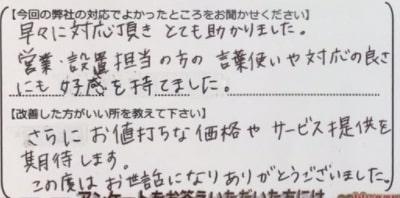 【今回の弊社の対応でよかったところをお聞かせください】
早々に対応頂きとても助かりました。
営業・設置担当の方の言葉使いや対応の良さ
にも好感を持てました。
【改善した方がいい所を教えて下さい】
さらにお値打ちな価格やサービス提供を
期待します。
この度はお世話になりありがとうございました。
アンケートをお答えいただいた方には